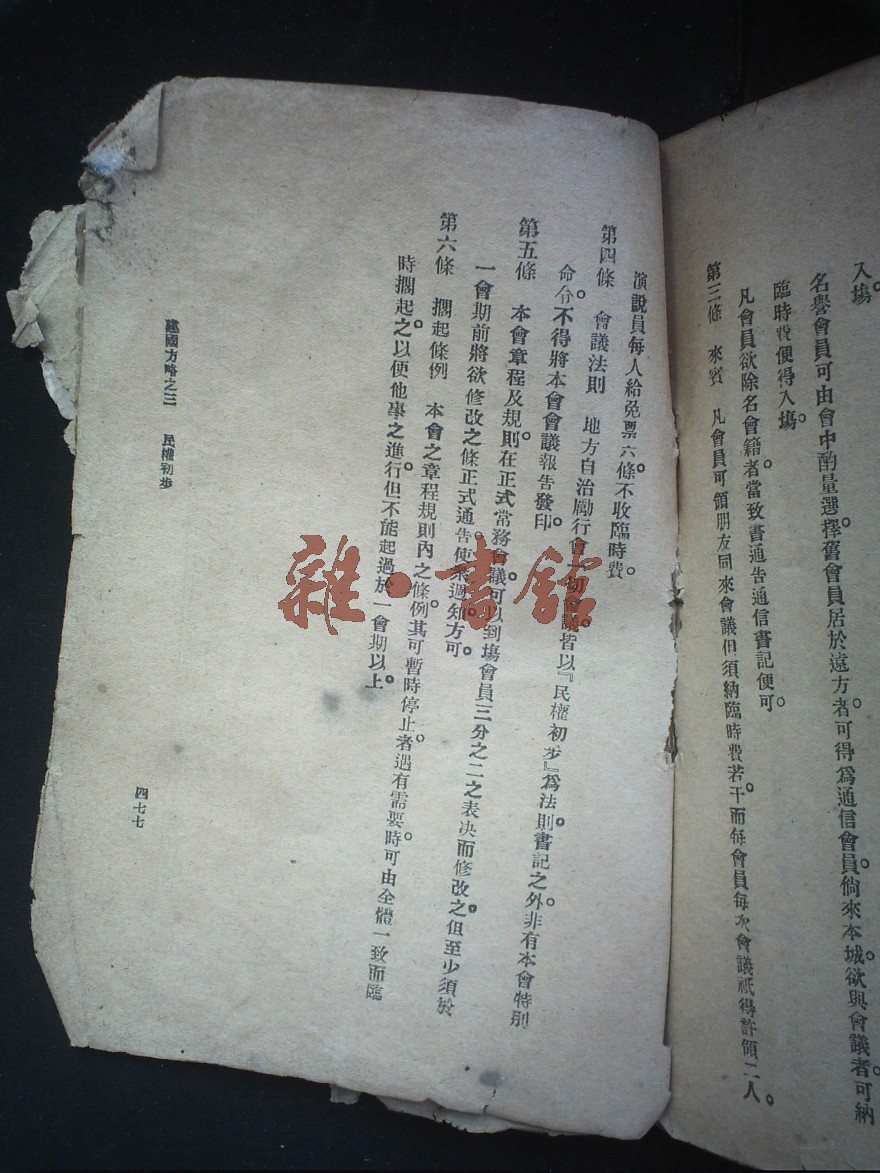 入塲。
名譽會員可由會中酌量選擇。舊會員居於遠方者可得爲通信會員。倘來本城欲與會議者。可納
臨時費。便得入塲。
凡會員欲除名會籍者。當致書通告通信書記便可。
第三條 來賓 凡會員可領朋友同來會議但須納臨時費若干。而每會員每次會議祇得許領二人。
演說員每人給免票六條。不收臨時費。
第四條 會議法則 地方自治勵行會一切會議。皆以『民權初步』爲法則。書記之外。非有本會特別
命令。不得將本會會議報告發印。
第五條 本會章程及規則。在正式常務會議。可以到塲會員三分之二之表决而修改之。但至少須於
一會期前將欲修改之條正式通告。使衆週知。方可。
第六條 擱起條例 本會之章程規則內之條例。其可暫時停止者。遇有需要時。可由全體一致而臨
時擱起。之以便他事之進行。但不能起過於一會期以上。
建國方略之三 民權初步
四七七
雜·書館